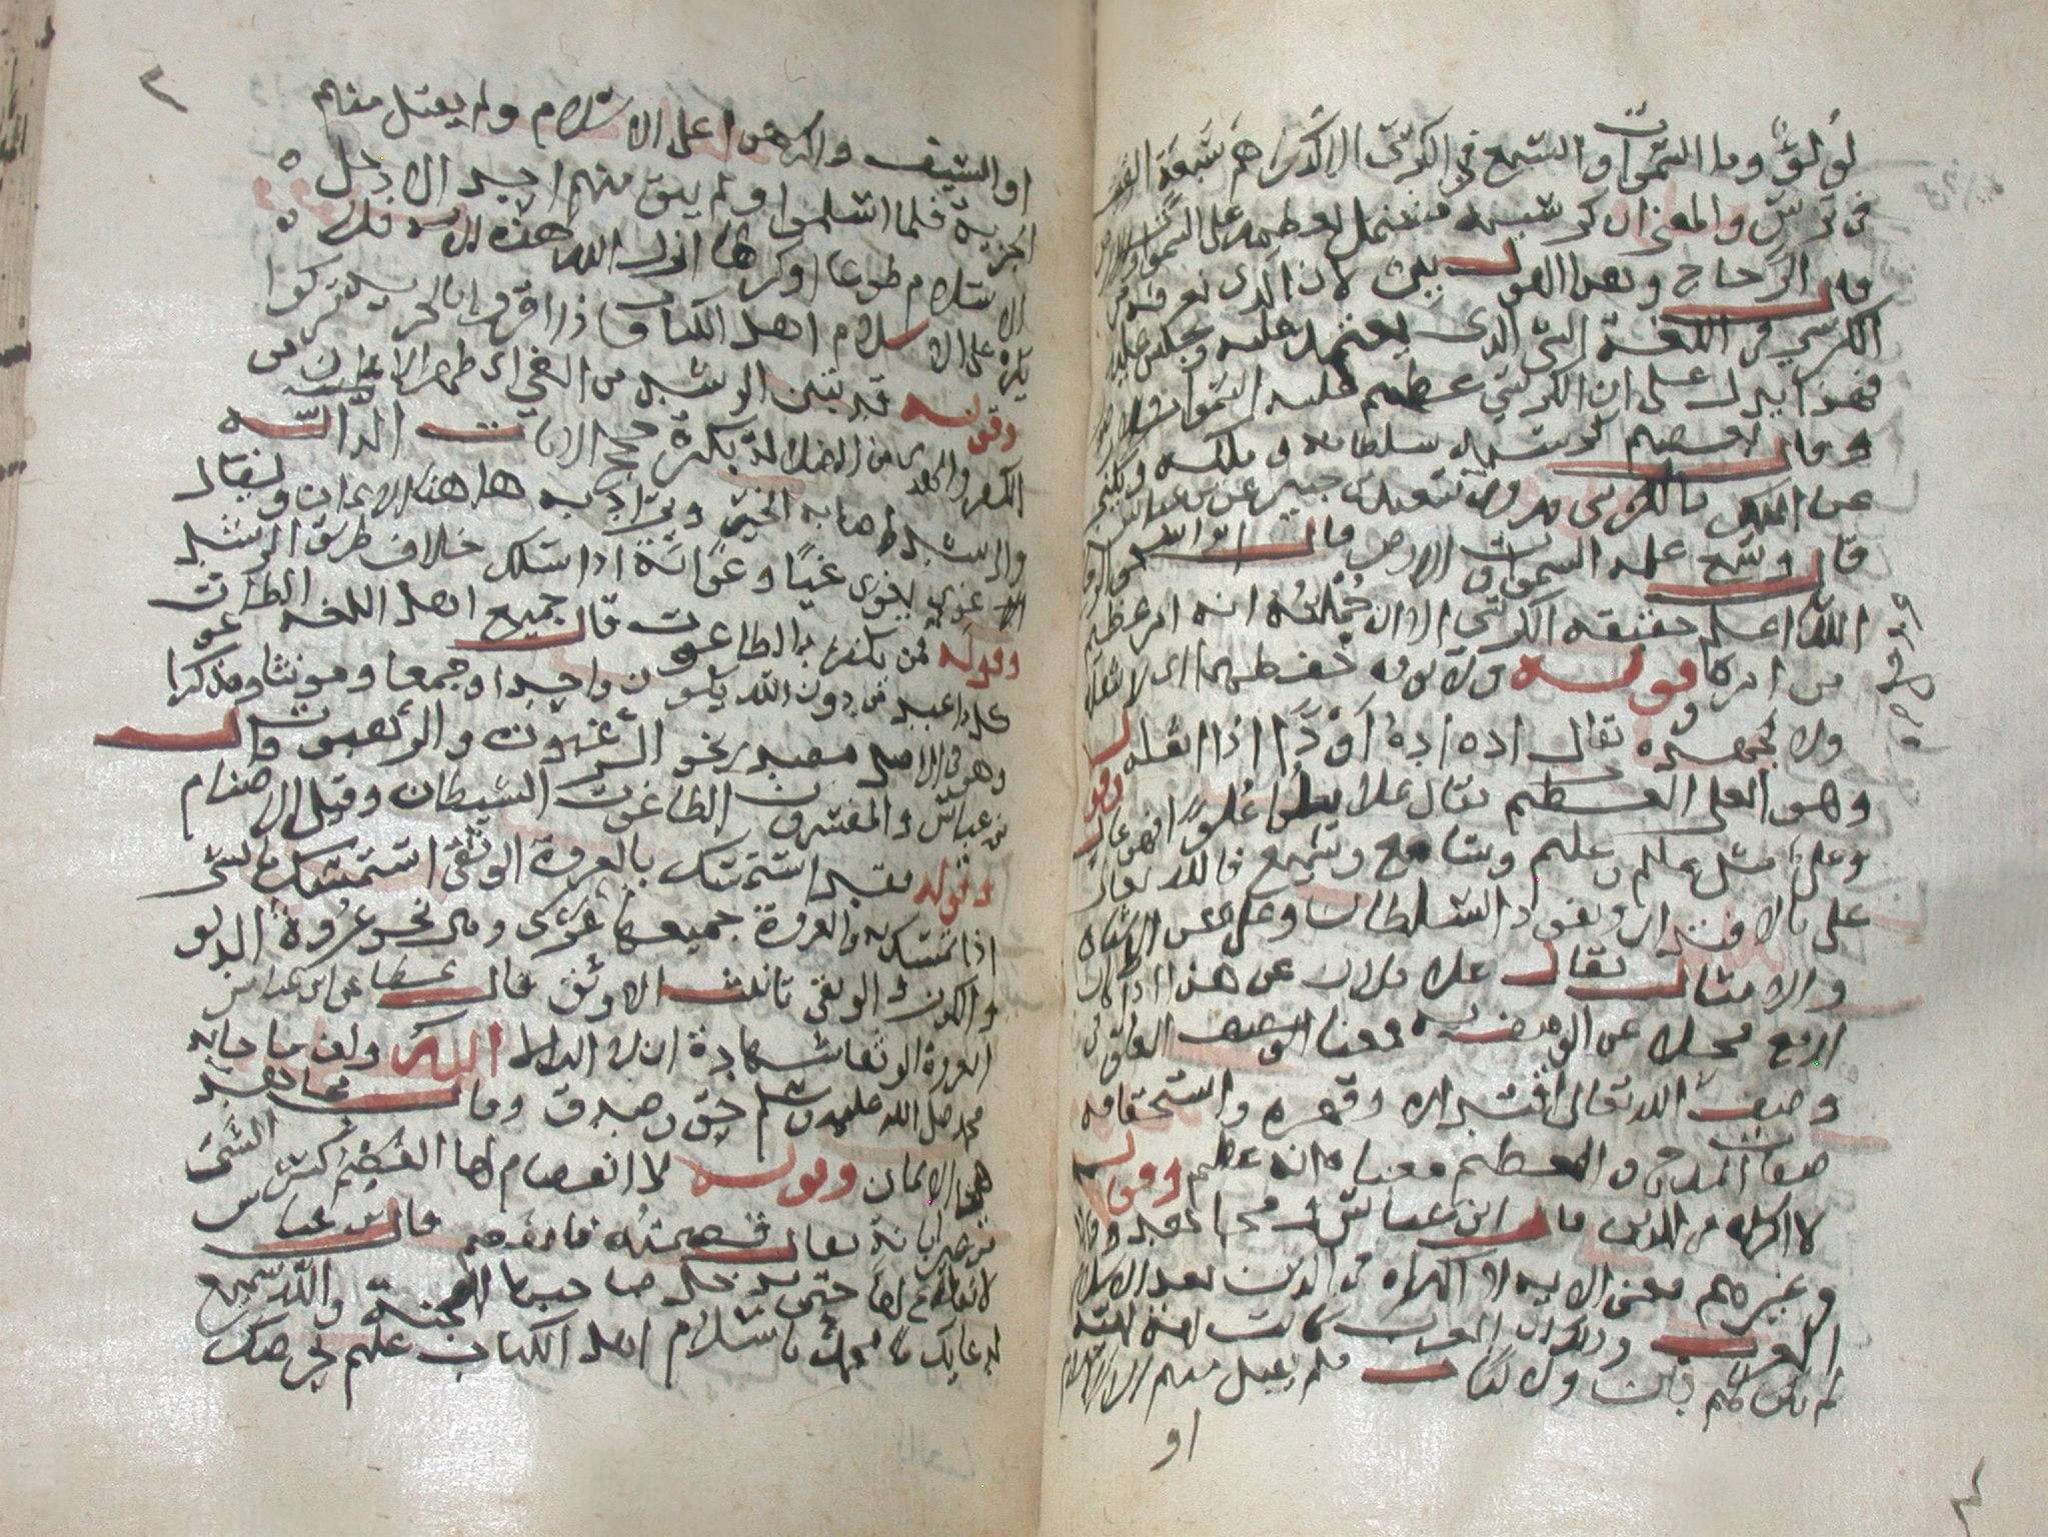 لؤلؤ وما السموات السبع في الكرسي الا كدراهم سبعة القيت
في ترس والمعنى ان كرسيه مشتمل بعظمه على السموات والارض
قال الزجاج وهذا القول بين لان الذي نعرفه من
الكرسي في اللغة الشي الذي يعتمد عليه ويجلس عليه
فهذا يدل على ان الكرسي عظيم عليه السموات والارض
وقال بعضهم كرسيه سلطانه وملكه ويكنى
عن الملك بالكرسي وروى سعيد بن جبير عن بن عباس
قال وسع علمه السموات والارض قال ابو اسحق
الله اعلم بحقيقة الكرسي الا ان جملته انه امر عظيم
من امره وقوله ولا يوده حفظهما اي لا يثقله
ولا يجهده يقال اده يؤده أودا اذا اثقله وقوله
وهو العلي العظيم يقال علا يعلو علوا فهو عال
وعلي مثل عالم وعليم وسامع وسميع فالله تعالى
علي بالاقتدار ونفوذ السلطان وعلي عن الاشباه
والامثال يقال علا فلان عن هذا اذا كان
ارفع محلا عن الوصف به فمعنا العلو في
وصف الله تعالى اقتداره وقهره واستحقاقه
صفات المدح و العظيم معناه انه عظيم وقوله
لا اكراه في الدين قال ابن عباس في مجاهد
وغيرهم معنى الاية لا اكراه في الدين بعد اسلام
العرب وذلك ان العرب كانت امة امية
لم يكن لهم دين ولا كتاب فلم يقبل منهم الا الاسلام
او
او السيف واكرهوا على الاسلام ولم يقبل منهم
الجزية فلما اسلموا ولم يبق منهم احد الا دخل
الاسلام طوعا او كرها انزل الله هذه الاية فلا
يكره على الاسلام اهل الكتاب اذا اقروا بالجزية تركوا
وقوله قد تبين الرشد من الغي اي ظهر الايمان من
الكفر والهدى من الضلالة بكثرة حجج الايات الدالة
والرشد اصابة الخير ويراد به هاهنا الايمان ويقال
غوى يغوى غيا وغواية اذا سلك خلاف طريق الرشد
وقوله فمن يكفر بالطاغوت قال جميع اهل اللغه الطاغوت
كل ما عبد من دون الله يكون واحدا وجمعا ومونثا ومذكرا
وهو في الاصل مصدر نحو الرغبوت والرهبوت قال
بن عباس والمفسرون الطاغوت الشيطان وقيل الاصنام
وقوله فقد استمسك بالعروة الوثقى استمسك بالشي
اذا تمسك به والعروة جمعها عرى وهي نحو عروة الدلو
والكوز و الوثقى تانيث الاوثق قال عطا عن ابن عباس
العروة الوثقا شهادة ان لا اله الا الله وان ما جا به
محمد صلى الله عليه وسلم حق وصدق وقال مجاهد
هي الايمان وقوله لا انفصام لها الفصم كسر الشي
من غير ابانة يقال فصمته فانفصم قال بن عباس
لا انقطاع لها حتى يدخل صاحبها الجنة والله سميع
لدعايك يا محمد باسلام اهل الكتاب عليم بحرصك